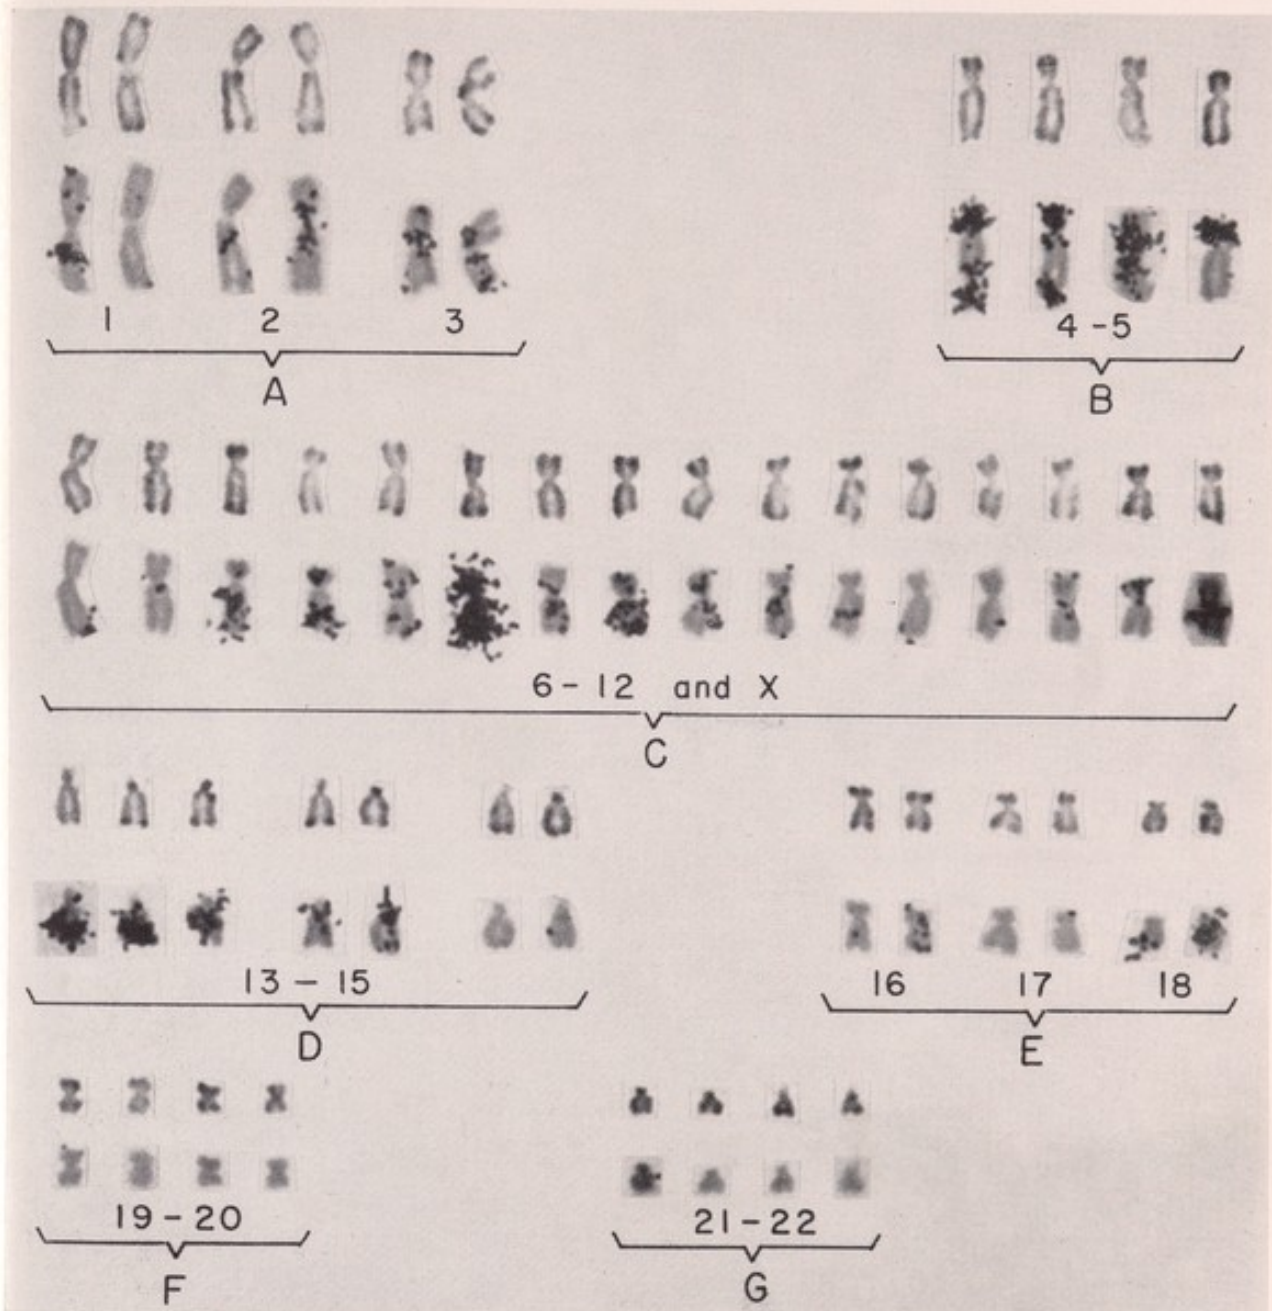 1 2 3 4-5
A B
6-12 and X
C
13-15 16 17 18
D E
19-20 21-22
F G